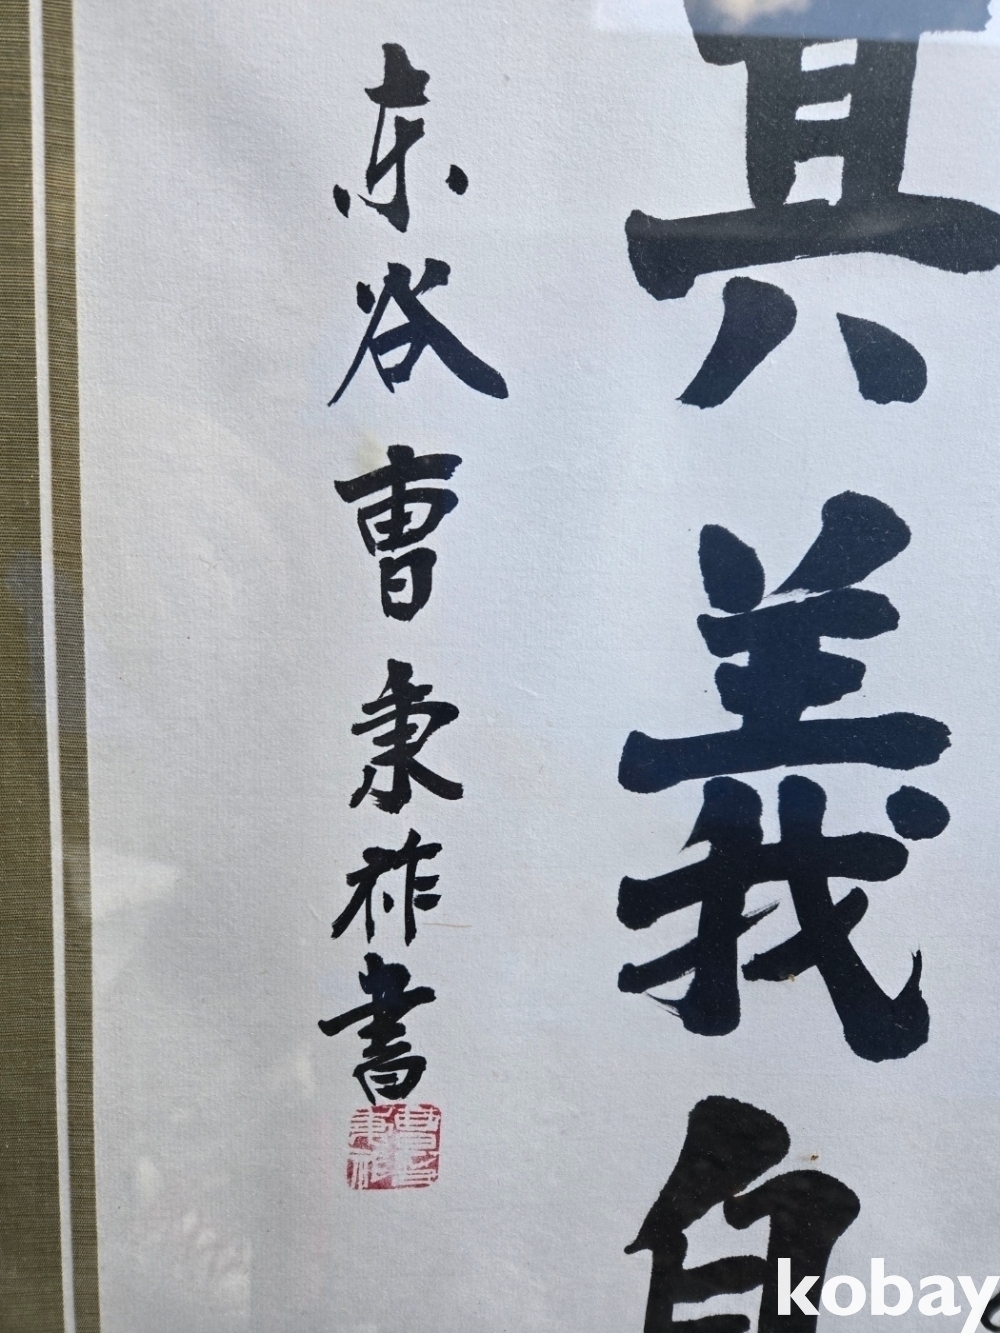 其義自
东谷曺秉祚書
kobay